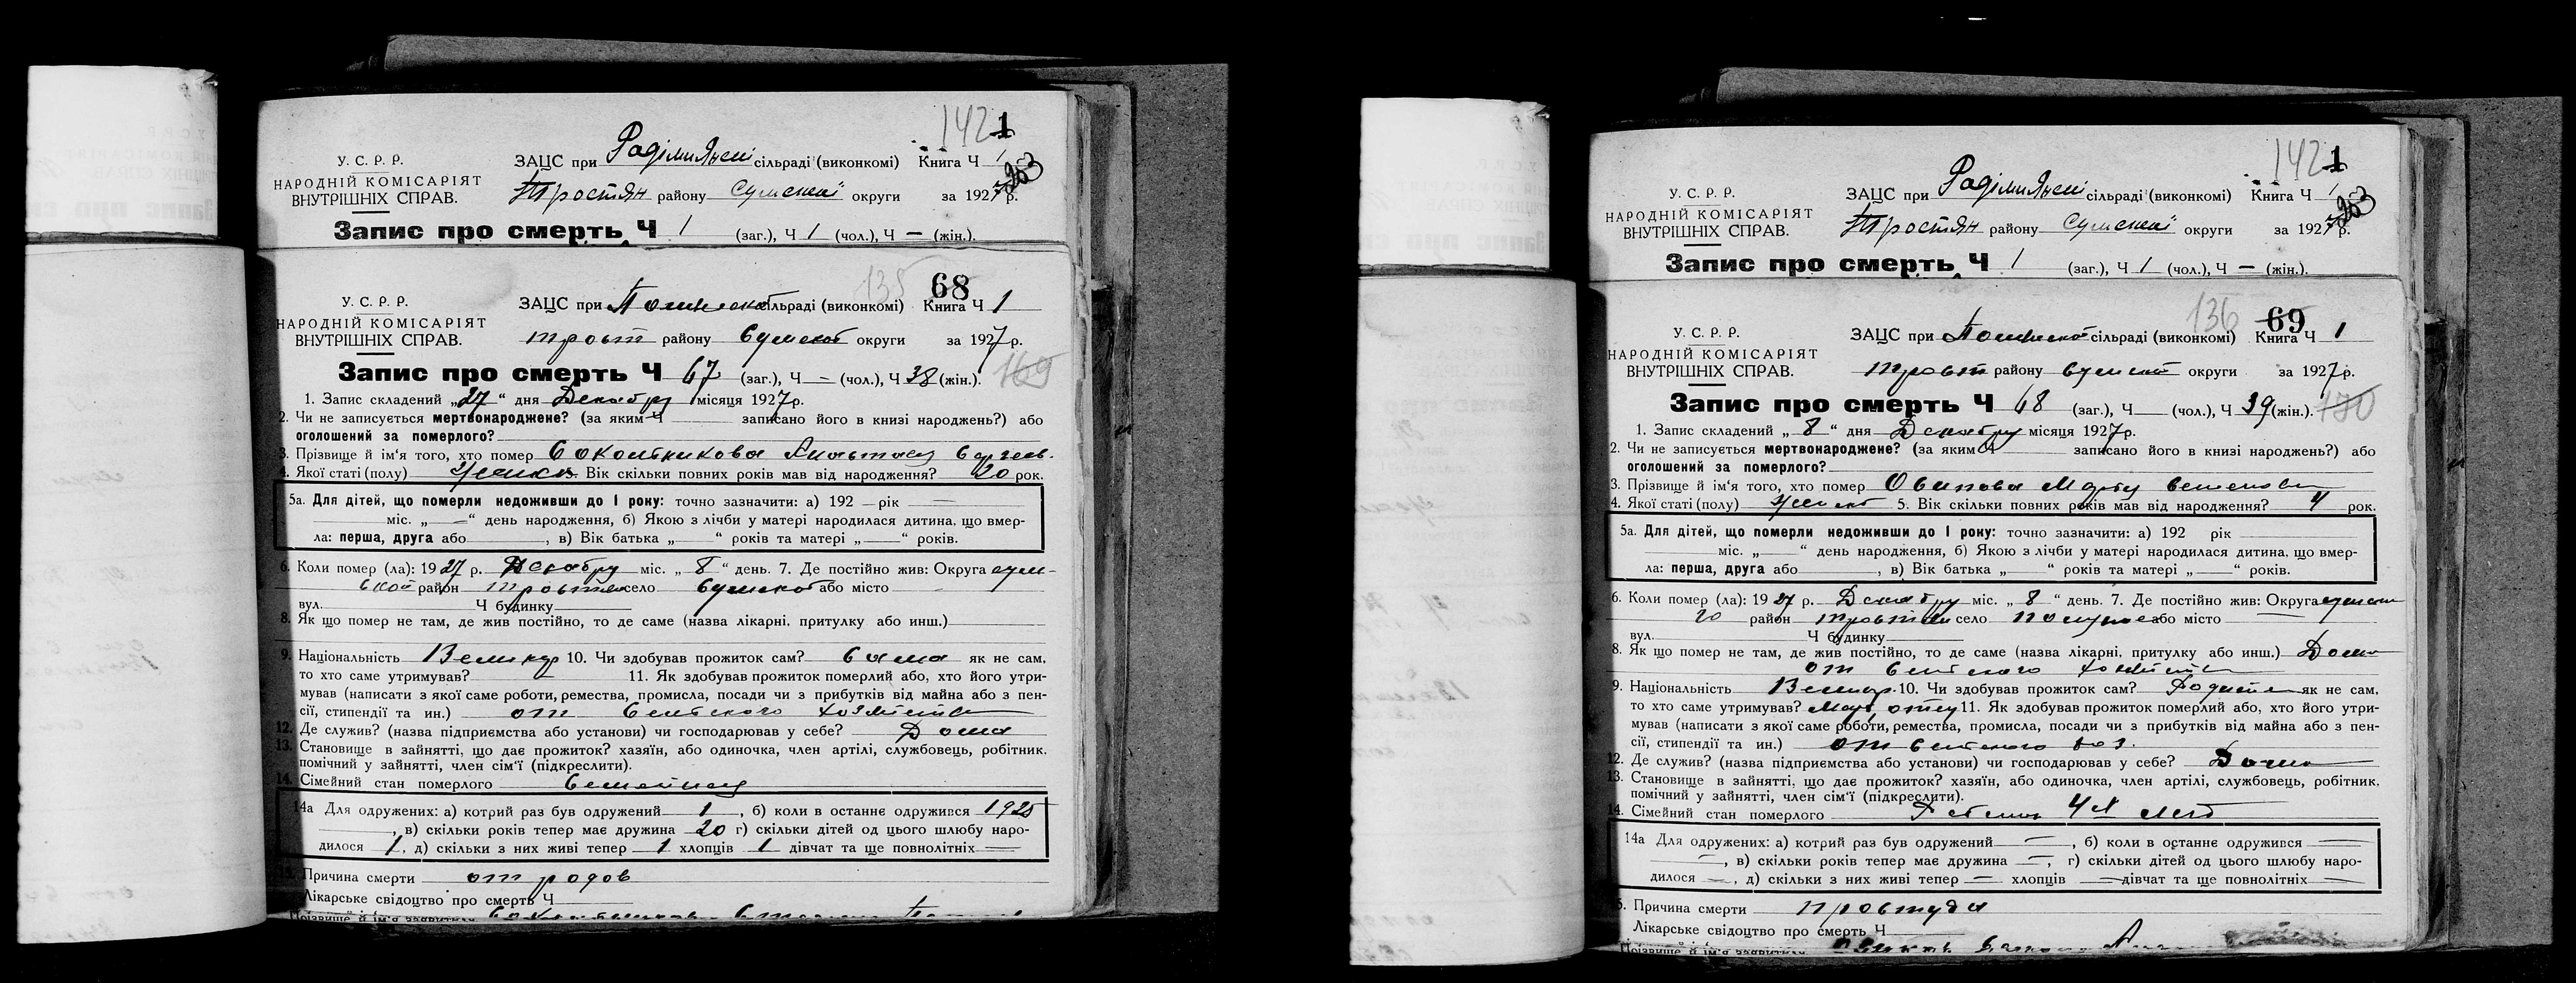 142 1
У. С. Р. Р.
НАРОДНІЙ КОМІСАРІЯТ
ВНУТРІШНІХ СПРАВ.
ЗАЦС при сільраді (виконкомі) Книга Ч 1
Тростян району Сумської округи за 1927 р.
263
Запис про смерть Ч 1 (заг.), Ч 1 (чол.), Ч — (жін.).
135 68
У. С. Р. Р.
НАРОДНІЙ КОМІСАРІЯТ
ВНУТРІШНІХ СПРАВ.
ЗАЦС при сільраді (виконкомі) Книга Ч 1
трост району Сумской округи за 1927 р.
Запис про смерть Ч 67 (заг.), Ч — (чол.), Ч 38 (жін.). 169
1. Запис складений „27“ дня Декабру місяця 1927 р.
2. Чи не записується мертвонароджене? (за яким Ч записано його в книзі народжень?) або
оголошений за померлого?
3. Прізвище й ім‘я того, хто помер Сокольникова
4. Якої статі (полу) Вік скільки повних років мав від народження? 20 рок.
5а. Для дітей, що померли недоживши до 1 року: точно зазначити: а) 192 — рік —
міс. „—“ день народження, б) Якою з лічби у матері народилася дитина, що вмер-
ла: перша, друга або , в) Вік батька „ “ років та матері „ “ років.
6. Коли помер (ла): 1927 р. Декабру міс. „8“ день. 7. Де постійно жив: Округа сум-
ской район тростян село або місто
вул. Ч будинку
8. Як що помер не там, де жив постійно, то де саме (назва лікарні, притулку або инш.)
9. Національність Великор 10. Чи здобував прожиток сам? сама як не сам,
то хто саме утримував? 11. Як здобував прожиток померлий або, хто його утри-
мував (написати з якої саме роботи, ремества, промисла, посади чи з прибутків від майна або з пен-
сії, стипендії та ин.) от сельского хозяйства
12. Де служив? (назва підприємства або установи) чи господарював у себе? Дома
13. Становище в зайнятті, що дає прожиток? хазяїн, або одиночка, член артілі, службовець, робітник,
помічний у зайнятті, член сім‘ї (підкреслити).
14. Сімейний стан померлого семейная
14а Для одружених: а) котрий раз був одружений 1 , б) коли в останнє одружився 1925
, в) скільки років тепер має дружина 20 г) скільки дітей од цього шлюбу наро-
дилося 1, д) скільки з них живі тепер 1 хлопців 1 дівчат та ще повнолітніх —
Причина смерти от родов
Лікарське свідоцтво про смерть Ч
Прізвище й ім‘я заявитиля
142 1
У. С. Р. Р.
НАРОДНІЙ КОМІСАРІЯТ
ВНУТРІШНІХ СПРАВ.
ЗАЦС при сільраді (виконкомі) Книга Ч 1
Тростян району Сумської округи за 1927 р.
263
Запис про смерть Ч 1 (заг.), Ч 1 (чол.), Ч — (жін.).
136 69
У. С. Р. Р.
НАРОДНІЙ КОМІСАРІЯТ
ВНУТРІШНІХ СПРАВ.
ЗАЦС при сільраді (виконкомі) Книга Ч 1
трост району округи за 1927 р.
Запис про смерть Ч 68 (заг.), Ч (чол.), Ч 39 (жін.). 170
1. Запис складений „8“ дня Декабру місяця 1927 р.
2. Чи не записується мертвонароджене? (за яким Ч записано його в книзі народжень?) або
оголошений за померлого?
3. Прізвище й ім‘я того, хто помер
4. Якої статі (полу) 5. Вік скільки повних років мав від народження? 4 рок.
5а. Для дітей, що померли недоживши до 1 року: точно зазначити: а) 192 рік
міс. „ “ день народження, б) Якою з лічби у матері народилася дитина, що вмер-
ла: перша, друга або , в) Вік батька „ “ років та матері „ “ років.
6. Коли помер (ла): 1927 р. Декабру міс. „8“ день. 7. Де постійно жив: Округа
район тростян село або місто
вул. Ч будинку
8. Як що помер не там, де жив постійно, то де саме (назва лікарні, притулку або инш.) Дома
от сельского
9. Національність Великор. 10. Чи здобував прожиток сам? як не сам,
то хто саме утримував? отец 11. Як здобував прожиток померлий або, хто його утри-
мував (написати з якої саме роботи, ремества, промисла, посади чи з прибутків від майна або з пен-
сії, стипендії та ин.) от сельского хоз.
12. Де служив? (назва підприємства або установи) чи господарював у себе? Дома
13. Становище в зайнятті, що дає прожиток? хазяїн, або одиночка, член артілі, службовець, робітник,
помічний у зайнятті, член сім‘ї (підкреслити).
14. Сімейний стан померлого лет
14а Для одружених: а) котрий раз був одружений — , б) коли в останнє одружився —
—, в) скільки років тепер має дружина —, г) скільки дітей од цього шлюбу наро-
дилося —, д) скільки з них живі тепер — хлопців — дівчат та ще повнолітніх —
Причина смерти простуда
Лікарське свідоцтво про смерть Ч
Прізвище й ім‘я заявитиля